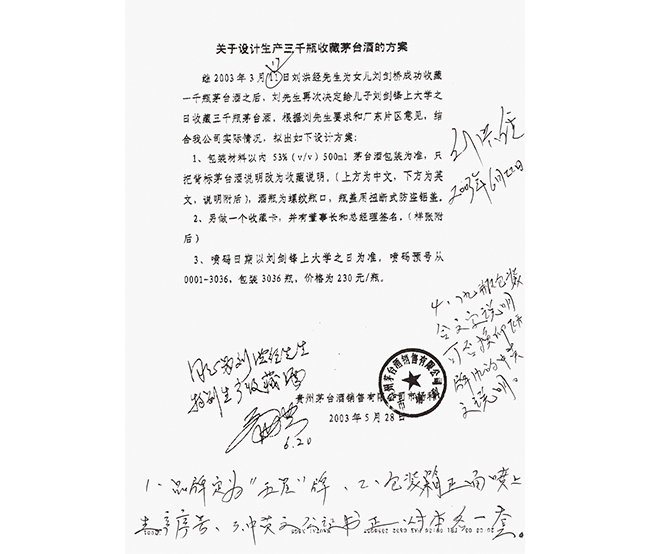 关于设计生产三千瓶收藏茅台酒的方案
17
继 2003 年 3 月 11 日刘洪经先生为女儿刘剑桥成功收藏
一千瓶茅台酒之后，刘先生再次决定给儿子刘剑锋上大学之
日收藏三千瓶茅台酒。根据刘先生要求和广东片区意见，结
合我公司实际情况，拟出如下设计方案：
1、包装材料以内 53%（v/v）500ml 茅台酒包装为准，只
把背标茅台酒说明改为收藏说明。（上方为中文，下方为英
文，说明附后），酒瓶为螺纹瓶口，瓶盖用扭断式防盗铝盖。
2、另做一个收藏卡，并有董事长和总经理签名。（样张附
后）
3、喷码日期以刘剑锋上大学之日为准。喷码预号从
0001-3036，包装 3036 瓶，价格为 230 元/瓶。
刘洪经
2003年6月22日
4、
包装
含文字说明
可否换
说明。
同意为刘洪经先生
特别生产收藏酒
6.20
贵州茅台酒销售有限公司
贵州茅台酒销售有限公司市场科
2003 年 5 月 28 日
1、品牌定为“五星”牌、2、包装箱正面喷上
生产序号、3、中英文公证书正、一套。